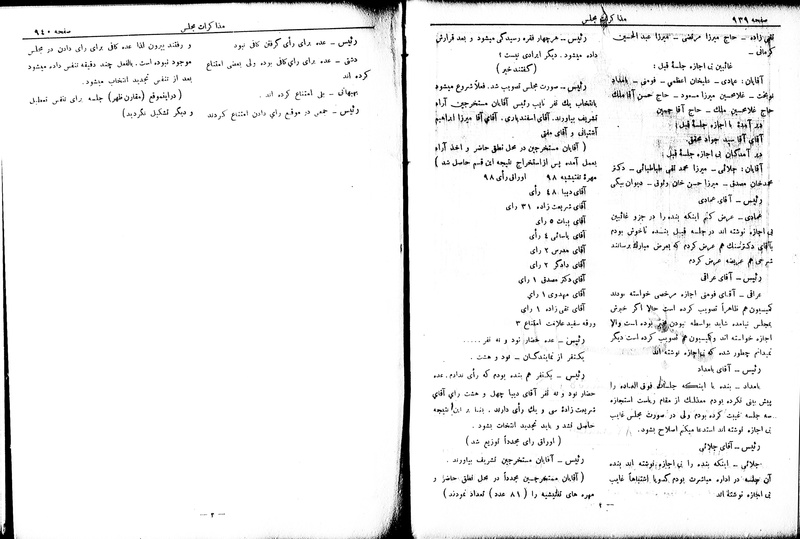 صفحه ۹۳۹
مذاکرات مجلس
تقی زاده ـ حاج میرزا مرتضی ـ میرزا عبدالحسین
کرمانی ـ
غائبین بی اجازه جلسه قبل :
آقایان : عمادی ـ علیخان اعظمی ـ فومنی ـ بامداد
نوبخت ـ غلامحسین میرزا مسعود ـ حاج حسن آقا ملك
حاج غلامحسین ملك ـ حاج آقا حسین
دیر آمده با اجازه جلسه قبل :
آقای آقا سید جواد محقق .
دیر آمدگان بی اجازه جلسه قبل :
آقایان : جلائی ـ میرزا محمد تقی طباطبائی ـ دکتر
محمدخان مصدق ـ میرزا حسن خان وثوق ـ دیوان بیگی
رئیس ـ آقای عمادی
عمادی ـ عرض کنم اینکه بنده را در جزو غائبین
بی اجازه نوشته اند در جلسه قبل بنده ناخوش بودم
بآقای دکترسنك هم عرض کردم که بعرض مبارك برسانند
شرحی هم عریضه عرض کردم
رئیس ـ آقای عراقی
عراقی ـ آقای فومنی اجازه مرخصی خواسته بودند
کمیسیون هم ظاهراً تصویب کرده است حالا اگر خبرش
بمجلس نیامده شاید بواسطه نبودن مخبر بوده است والا
اجازه خواسته اند و کمیسیون هم تصویب کرده است دیگر
نمیدانم چطور شده که بی اجازه نوشته اند
رئیس ـ آقای بامداد
بامداد ـ بنده با اینکه جلسات فوق العاده را
پیش بینی نکرده بودم معذلك از مقام ریاست استجازه
سه جلسه غیبت کرده بودم ولی در صورت مجلس غایب
بی اجازه نوشته اند استدعا میکنم اصلاح بشود .
رئیس ـ آقای جلائی
جلائی ـ اینکه بنده را بی اجازه نوشته اند بنده
آن جلسه در اداره مباشرت بودم گویا اشتباهاً غایب
بی اجازه نوشته اند
رئیس ـ هرچهار فقره رسیدگی میشود و بعد قرارش
داده میشود . دیگر ایرادی نیست ؛
( گفتند خیر )
رئیس ـ صورت مجلس تصویب شد . فعلا شروع میشود
بانتخاب یك نفر نایب رئیس آقایان مستخرجین آراء
تشریف بیاورند . آقای اسفندیاری . آقای آقا میرزا ابراهیم
آشتیانی و آقای مفتی
( آقایان مستخرجین در محل نطق حاضر و اخذ آراء
بعمل آمده پس از استخراج نتیجه این قسم حاصل شد )
مهره تفتیشیه ۹۸ اوراق رأی ۹۸
آقای دیبا ۴۸ رأی
آقای شریعت زاده ۳۱ رای
آقای بیات ۵ رای
آقای یاسائی ۴ رأی
آقای مدرس ۲ رای
آقای دادگر ۲ رای
آقای دکتر مصدق ۱ رأی
آقای مهدوی ۱ رای
آقای تقی زاده ۱ رای
ورقه سفید علامت امتناع ۳
رئیس ـ عده حضار نود و نه نفر . . . . .
یکنفر از نمایندگان ـ نود و هشت .
رئیس ـ یکنفر هم بنده بودم که رأی ندادم . عده
حضار نود و نه نفر آقای دیبا چهل و هشت رای آقای
شریعت زاده سی و یك رأی دارند . بنا بر این نتیجه
حاصل نشد و باید تجدید انتخاب بشود .
( اوراق رای مجدداً توزیع شد )
رئیس ـ آقایان مستخرجین تشریف بیاورند .
( آقایان مستخرجین مجدداً در محل نطق حاضر و
مهره های تفتیشیه را ( ۸۱ عدد ) تعداد نمودند )
ـ ۲ ـ
مذاکرات مجلس
صفحه ۹۴۰
رئیس ـ عده برای رأی گرفتن کافی نبود
دشتی ـ عده برای رای کافی بوده ولی بعضی امتناع
کرده اند
بهبهانی ـ بلی امتناع کرده اند .
رئیس ـ جمعی در موقع رای دادن امتناع کردند
و رفتند بیرون لذا عده کافی برای رای دادن در مجلس
موجود نبوده است . بالفعل چند دقیقه تنفس داده میشود
بعد از تنفس تجدید انتخاب میشود .
( دراینموقع (مقارن ظهر) جلسه برای تنفس تعطیل
و دیگر تشکیل نگردید )
ـ ۳ ـ